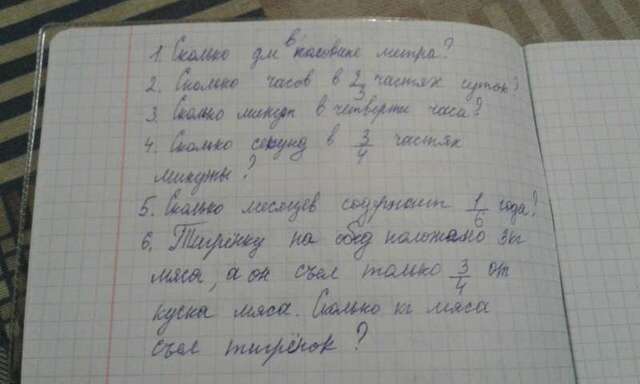 1. Сколько дм в половине метра?
2. Сколько часов в 2/3 частях суток?
3. Сколько минут в четверти часа?
4. Сколько секунд в 3/4 частях
минуты?
5. Сколько месяцев содержит 1/6 года?
6. Тигрёнку на обед положено 3кг
мяса, а он съел только 3/4 от
куска мяса. Сколько кг мяса
съел тигрёнок?